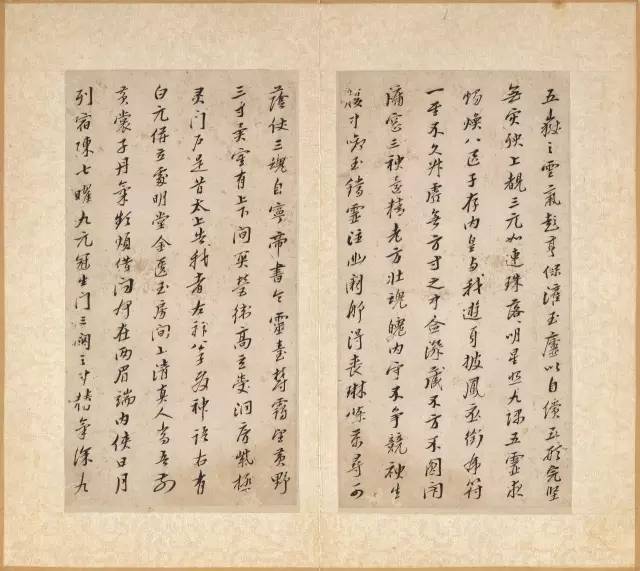 五嶽之雲氣彭亨保灌玉廬以自償五形完堅
無災殃上覩三元如連珠落明景照九隅五靈夜
燭煥八區子存內皇與我遊身披鳳衣銜虎符
一至不久昇虛無方寸之中念深藏不方不圓閉
牖窗三神還精老方壯魂魄內守不爭競神生
腹中銜玉鐺靈注幽闕那得喪琳條萬尋可
蔭仗三魂自寧帝書命靈臺鬱靄望黃野
三寸異室有上下間關營衛高玄受洞房紫極
靈門戶是昔太上告我者左神公子發神語右有
白元併立處明堂金匱玉房間上清真人當吾前
黃裳子丹氣頻煩借問何在兩眉端內俠日月
列宿陳七曜九元冠生門三關之中精氣深九